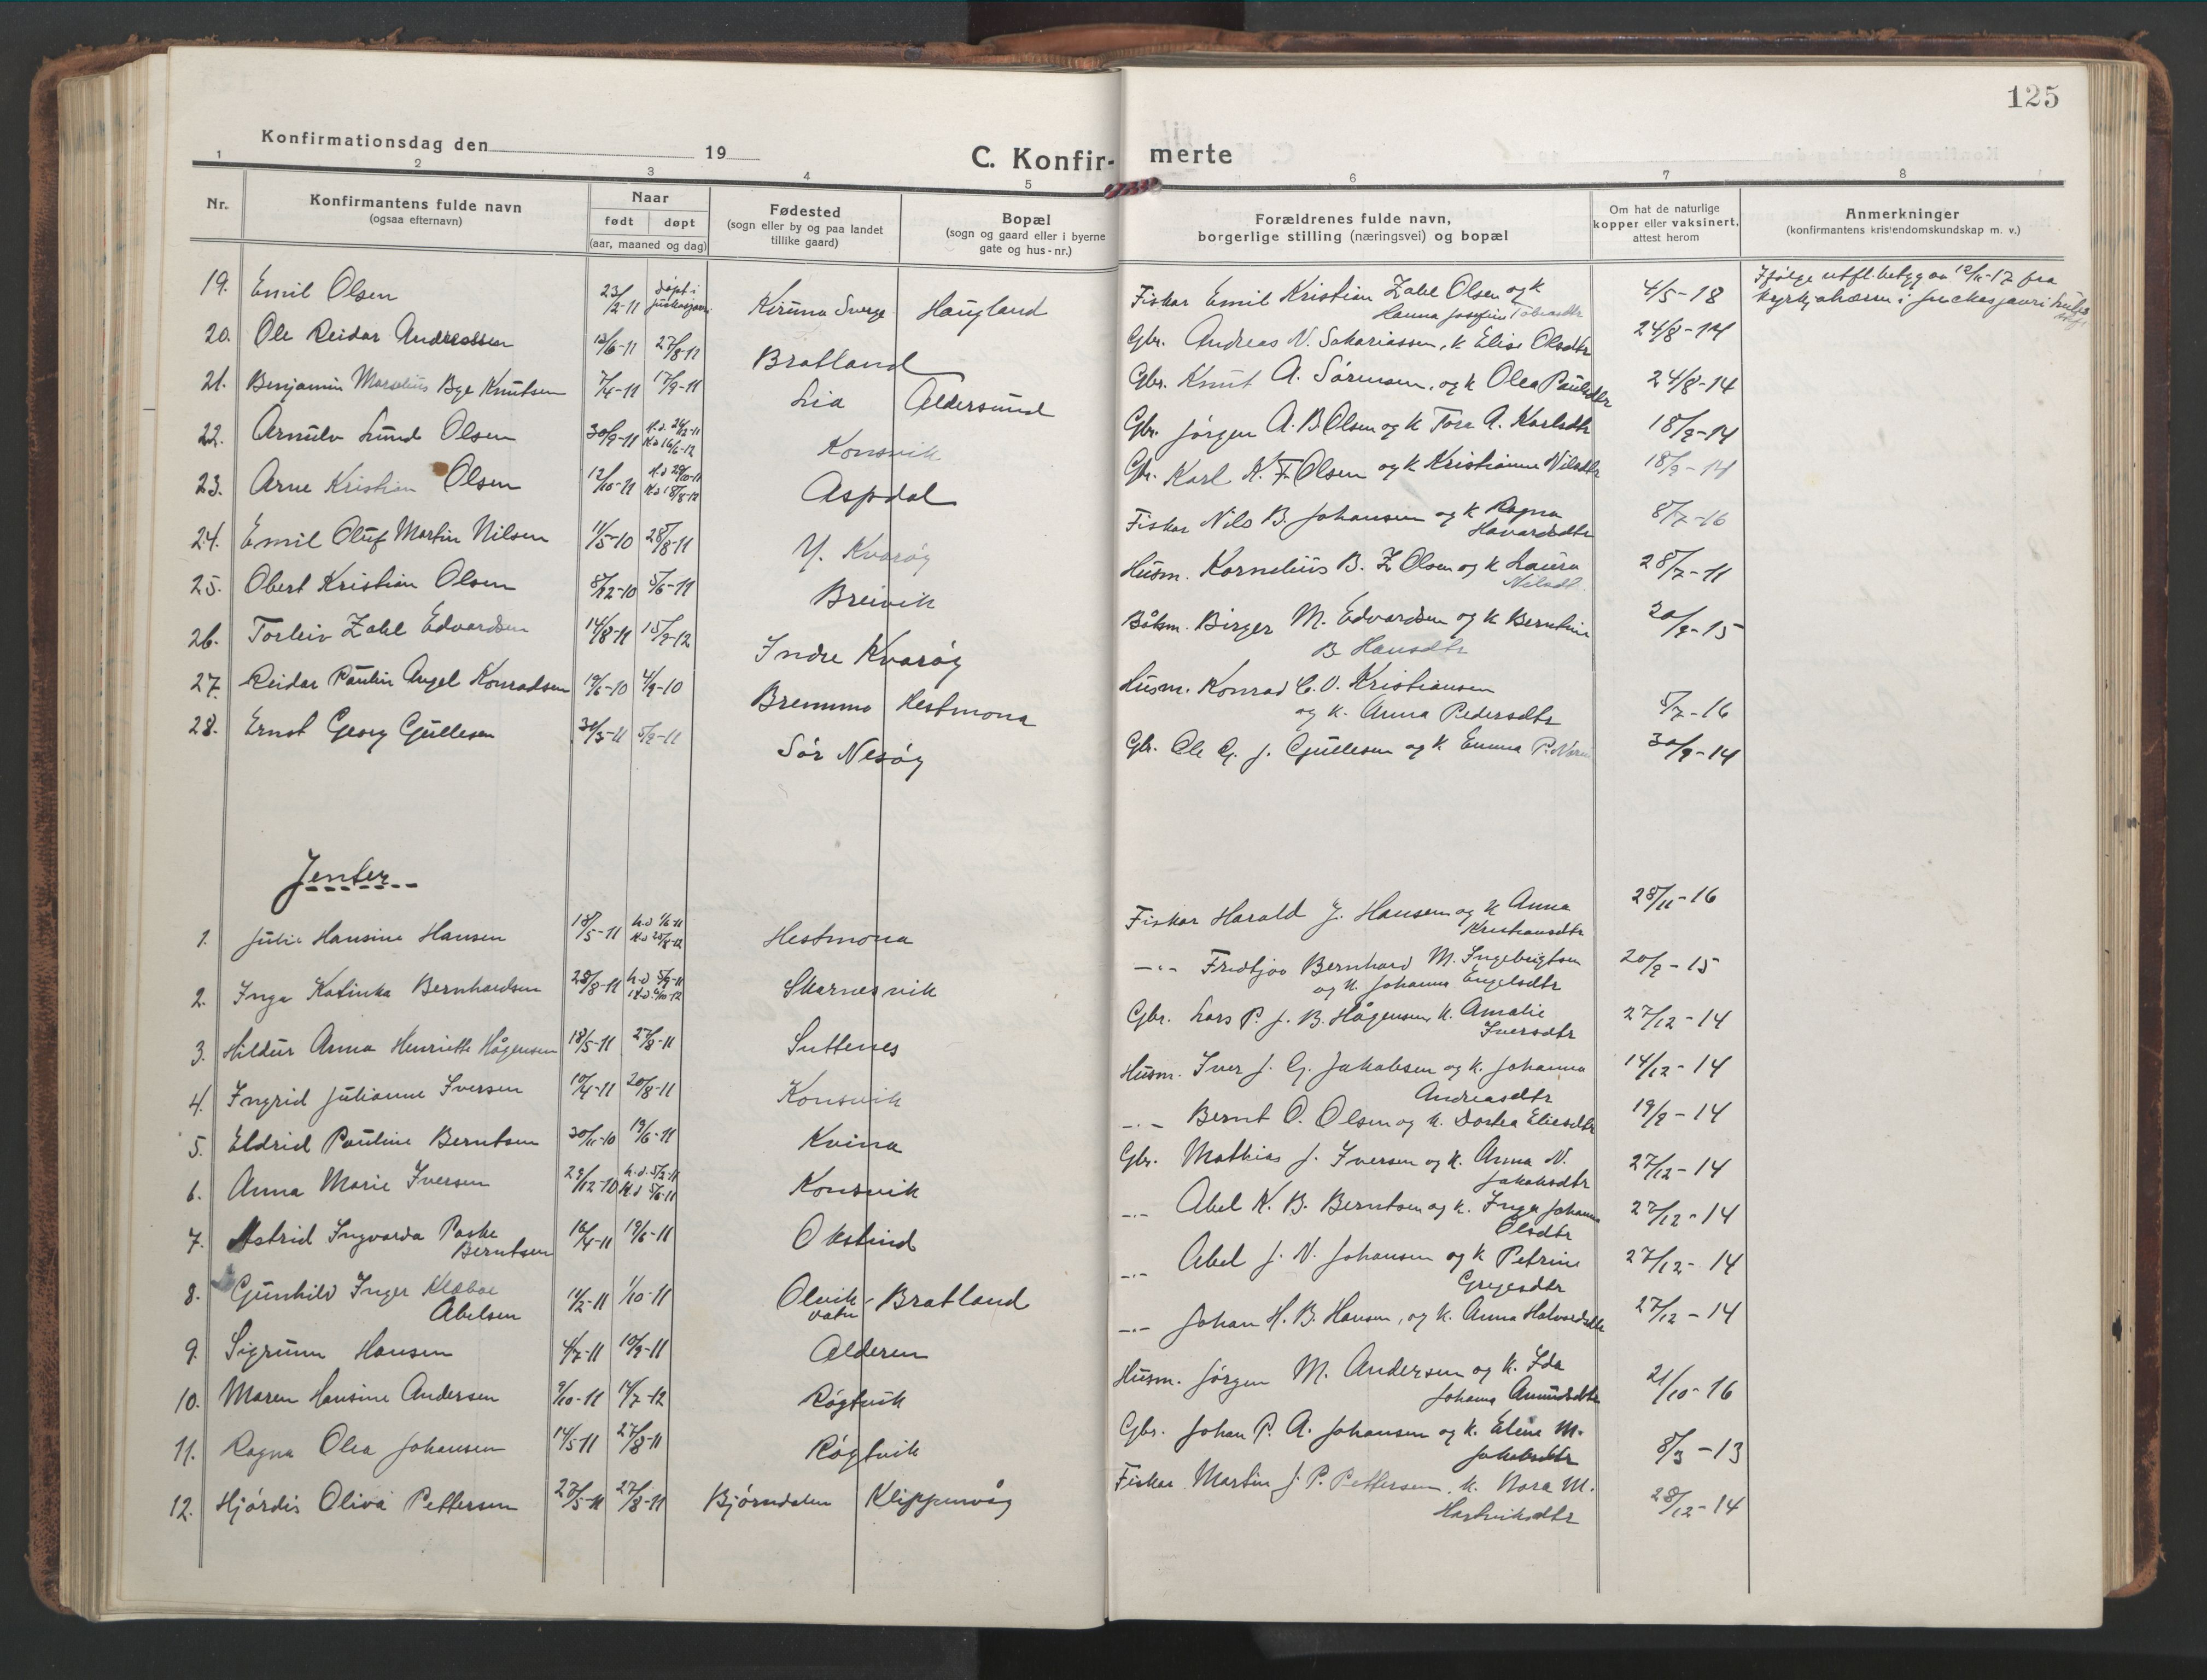 125
Konfirmationsdag den 19
C. Konfir- merte
1 2 3 4 5 6 7 8
Nr. Konfirmantens fulde navn (ogsaa efternavn) Naar født døpt (aar, maaned og dag) Fødested (sogn eller by og paa landet tillike gaard) Bopæl (sogn og gaard eller i byerne gate og hus-nr.) Forældrenes fulde navn, borgerlige stilling (næringsvei) og bopæl Om hat de naturlige kopper eller vaksinert, attest herom Anmerkninger (konfirmantens kristendomskundskap m. v.)
19. Emil Olsen 23/2-11 døpt i Kiruna Sverge Haugland Fiskar Emil Kristian Zahl Olsen og k Hanna Josefin 4/5-18 Ifølge utfl.betyg av 12/11-17 fra
20. Ole Reidar Andreassen 13/6-11 27/8-11 Bratland Gbr. Andreas N. Sakariassen, k Elise Olsdtr 24/8-14
21. Benjamin Marselius Bye Knutsen 7/4-11 17/9-11 Lia Aldersund Gbr. Knut A. Sørensen, og k Olea Paulsdtr 24/8-14
22. Arnulv Lund Olsen 30/9-11 Konsvik Gbr. Jørgen A. B. Olsen og k Tora A. Karlsdtr 18/9-14
23. Arne Kristian Olsen 12/10-11 Aspdal Gbr. Karl K. F. Olsen og k Kristianne Nilsdtr 18/9-14
24. Emil Oluf Martin Nilsen 11/5-10 28/8-11 Y. Kvarøy Fiskar Nils B. Johansen og k Ragna Havardsdtr 8/7-16
25. Obert Kristian Olsen 8/12-10 5/6-11 Breivik Husm. Kornelius B. Z Olsen og k Laura Nilsdt. 28/7-11
26. Torleiv Zahl Edvardsen 14/8-11 15/9-12 Indre Kvarøy Båtsm. Birger M. Edvardsen og k Berntine B Hansdtr 20/9-15
27. Reidar Paulin Angel Konradsen 19/6-10 4/9-10 Bremmo Hestmona Husm. Konrad C. O. Kristiansen og k. Anna Pedersdtr 5/7-16
28. Ernst Georg Gullesen 30/3-11 5/9-11 Sør Nesøy Gbr. Ole G. J. Gullesen og k Emma 30/9-14
Jenter
1. Julie Hansine Hansen 18/5-11 Hestmona Fiskar Harald J. Hansen og k Anna Kristiansdtr 28/11-16
2. Inga Katinka Bernhardsen 28/8-11 Skarnesvik -"- Fridtjov Bernhard M. Ingebrigtsen og k. Johanna Engelsdtr 20/9-15
3. Hildur Anna Henriette Hågensen 18/5-11 27/8-11 Suttenes Gbr. Lars P. J. B. Hågensen, k. Amalie Iversdtr 27/12-14
4. Ingrid Julianne Iversen 10/4-11 20/8-11 Konsvik Husm. Iver J. G. Jakobsen og k. Johanna Andreasdtr 14/12-14
5. Eldrid Pauline Berntsen 30/11-10 19/6-11 Kvina -"- Bernt O. Olsen og k. Dortea Eliasdtr 19/9-14
6. Anna Marie Iversen 29/12-10 Konsvik Gbr. Mathias J. Iversen og k. Anna N. Jakobsdtr 27/12-14
7. Astrid Ingvarda Paske Berntsen 16/4-11 19/6-11 Okstind -"- Abel K. B. Berntsen og k. Inga Johanna Olsdtr 27/12-14
8. Gunhild Inger Klæboe Abelsen 14/2-11 1/10-11 Olvikvatn - Bratland -"- Abel J. N. Johansen og k Petrine Gregesdtr 27/12-14
9. Sigrunn Hansen 4/7-11 10/9-11 Alderen -"- Johan H. B. Hansen, og k. Anna Halvordsdtr 27/12-14
10. Maren Hansine Andersen 9/10-11 14/7-12 Røgtvik Husm. Jørgen M. Andersen og k. Ida Johanna Amundsdtr 21/10-16
11. Ragna Olea Johansen 14/5-11 27/8-11 Røgtvik Gbr. Johan P. A. Johansen og k. Eline M. Jakobsdtr 8/3-13
12. Hjørdis Oliva Pettersen 27/5-11 27/8-11 Bjørndalen Klippenvåg Fiskar Martin J. P. Pettersen, k. Nora M. Hartviksdtr 28/12-14